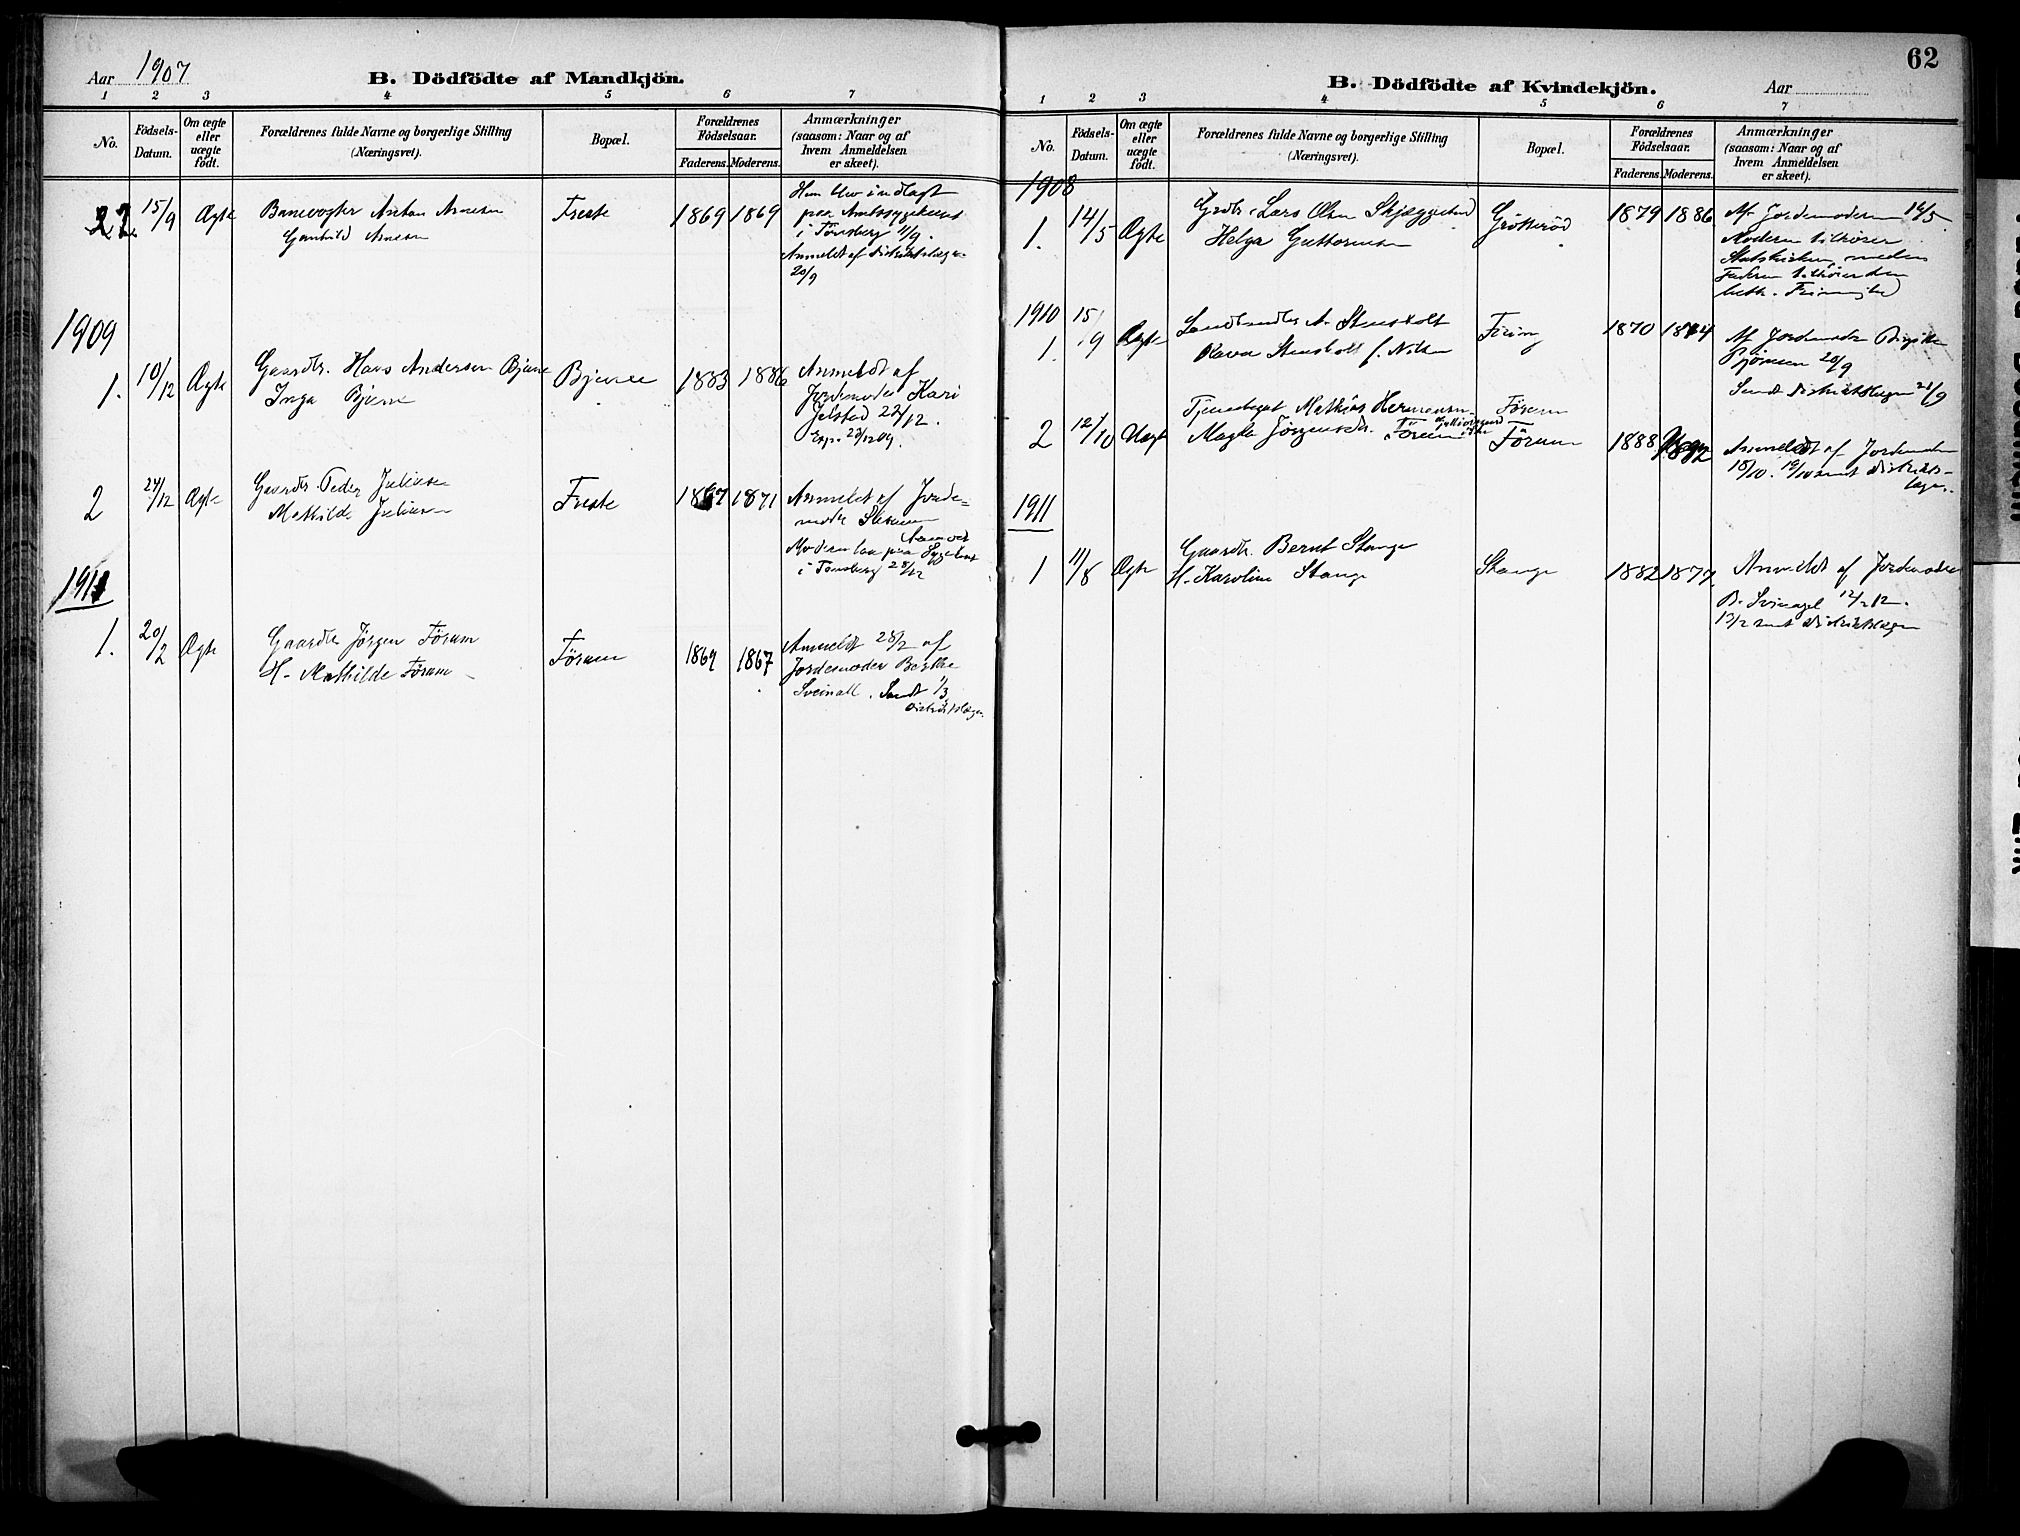 Aar 1907
B. Dödfödte af Mandkjön.
1 2 3 4 5 6 7
No.
Födsels-Datum.
Om ægte eller uægte födt.
Forældrenes fulde Navne og borgerlige Stilling (Næringsvei).
Bopæl.
Forældrenes Födselsaar.
Faderens. Moderens.
Anmærkninger (saasom: Naar og af hvem Anmeldelsen er skeet).
15/9 Ægte Banevogter Anton Arnesen Freste 1869 1869
Gunhild Arnesen
i Tönsberg 11/9.
Anmeldt af Distriktslægen
20/9
1909
1. 10/12 Ægte Gaardbr. Hans Andersen Bjerve Bjerve 1883 1886 Anmeldt af
Inga Bjerve
Jordemoder Kari
Jelstad 22/12.
Exp. 23/12 09.
2 27/12 Ægte Gaardbr. Peder Julius­en Freste 1871 Anmeldt af Jorde-
Mathilde Juliusen
moder
Moderen laa paa Sygehuset
i Tønsberg 28/12
1911
1. 20/2 Ægte Gaardbr Jörgen Förum Förum 1867
H. Mathilde Förum
Anmeldt 28/2 af
Jordemoder Berthe
Sveinall. Sendt 1/3
Distriktslægen.
62
B. Dödfödte af Kvindekjön.
Aar
1 2 3 4 5 6 7
No.
Födsels-Datum.
Om ægte eller uægte födt.
Forældrenes fulde Navne og borgerlige Stilling (Næringsvei).
Bopæl.
Forældrenes Födselsaar.
Faderens. Moderens.
Anmærkninger (saasom: Naar og af hvem Anmeldelsen er skeet).
1908
1. 14/5 Ægte Grdbr. Lars Olsen Skjæggestad Grötteröd 1879 1886 Af Jordemoderen 16/5.
Helga Guttormsen
Moderen tilhører
Statskirken, medens
Faderen tilhører den
luth. Frimenighed
1910
1. 15/9 Ægte Landhandler A. Stensholt 1870 1874 Af Jordemoder
Stensholt f. Nilsen
20/9
Sendt Distriktslægen 21/9
2 12/10 Uægte Tjenestegut Mathias Hermansen Förum
Magda Jörgensdr. Förum Förum 1888 1892 Anmeldt af Jordemoder
18/10. 19/10 sendt Distrikts-
lægen.
1911
1 11/8 Ægte Gaardbr. Bernt Stange Stange 1882 1877 Anmeldt af Jordemoder
H. Karoline Stange
12/2 12.
13/2 sendt Distriktslægen